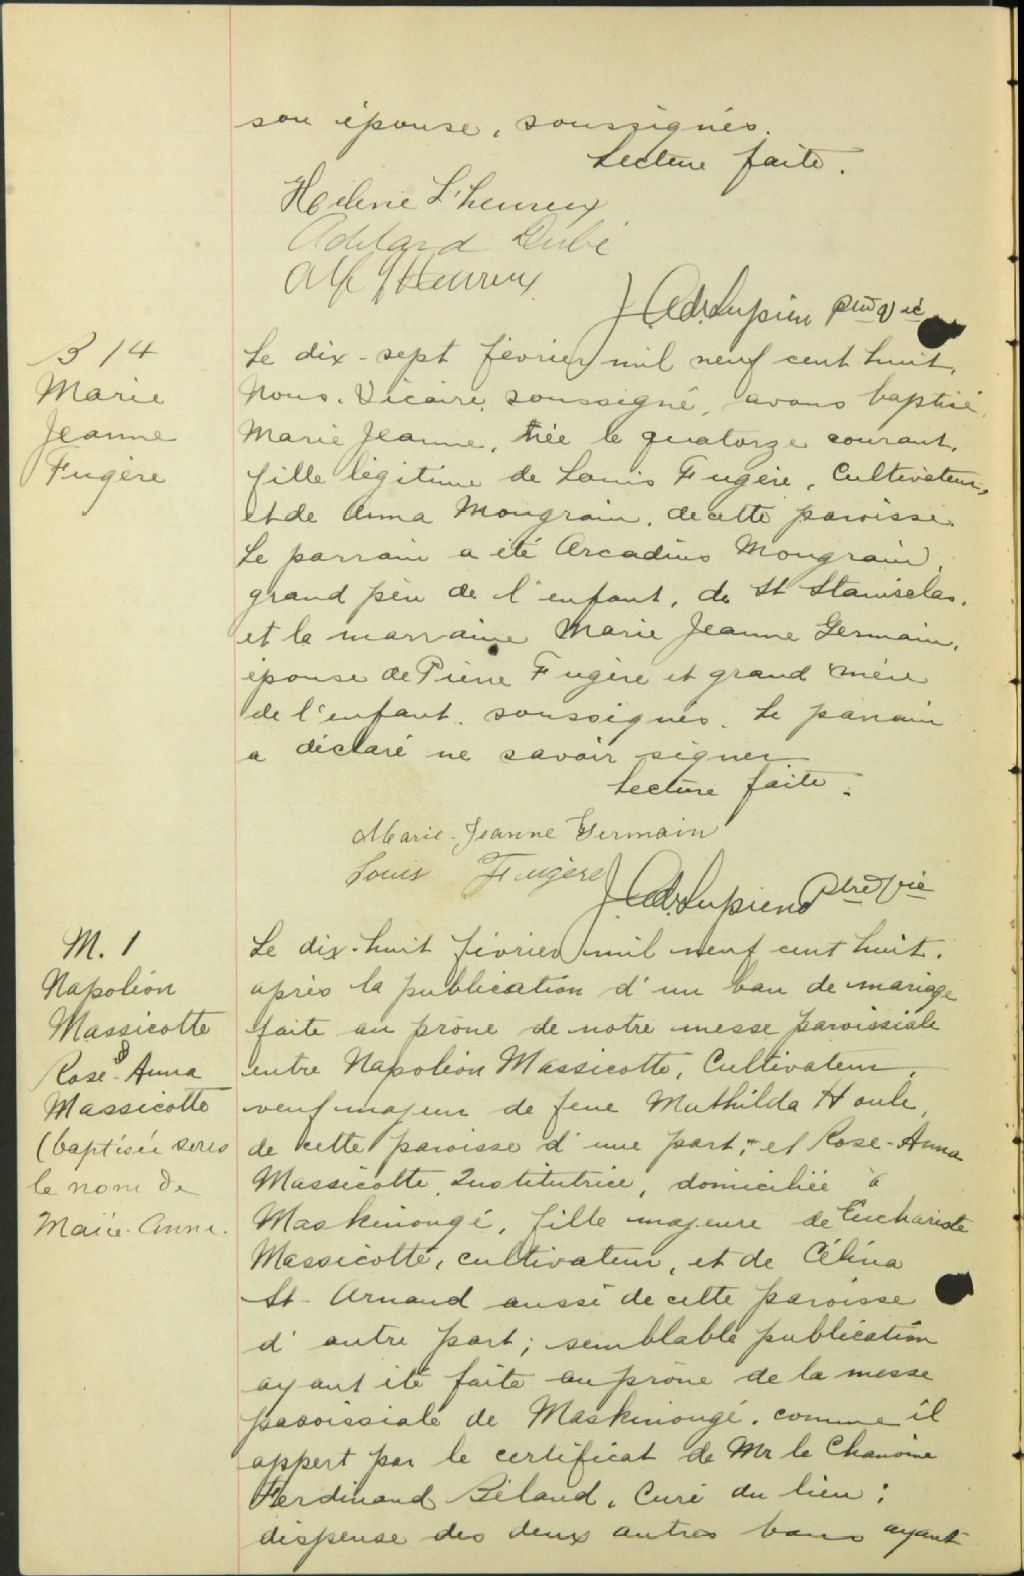 son épouse, soussignés.
Lecture faite.
Hélène L'heureux
Adélard Dubé
Alf L'Heureux
J. Ad. Lupien ptre vic
B 14
Marie
Jeanne
Fugère
Le dix-sept février mil neuf cent huit,
Nous, Vicaire soussigné, avons baptisé
Marie Jeanne, née le quatorze courant,
fille légitime de Louis Fugère, Cultivateur,
et de Anna Mongrain, de cette paroisse.
Le parrain a été Arcadius Mongrain,
grand père de l'enfant, de St Stanislas,
et la marraine Marie Jeanne Germain,
épouse de Pierre Fugère et grand'mère
de l'enfant, soussignés. Le parrain
a déclaré ne savoir signer
Lecture faite.
Marie-Jeanne Germain
Louis Fugère
J. Ad. Lupien Ptre vic
M. 1
Napoléon
Massicotte
&
Rose-Anna
Massicotte
(baptisée sous
le nom de
Marie-Anna.
Le dix-huit février mil neuf cent huit,
après la publication d'un ban de mariage
faite au prône de notre messe paroissiale
entre Napoléon Massicotte, Cultivateur,
veuf majeur de feue Mathilda Houle,
de cette paroisse d'une part; et Rose-Anna
Massicotte, Institutrice, domiciliée à
Maskinongé, fille majeure de Euchariste
Massicotte, cultivateur, et de Célina
St-Arnaud aussi de cette paroisse
d'autre part; semblable publication
ayant été faite au prône de la messe
paroissiale de Maskinongé, comme il
appert par le certificat de Mr le Chanoine
Ferdinand Béland, Curé du lieu;
dispense des deux autres bans ayant